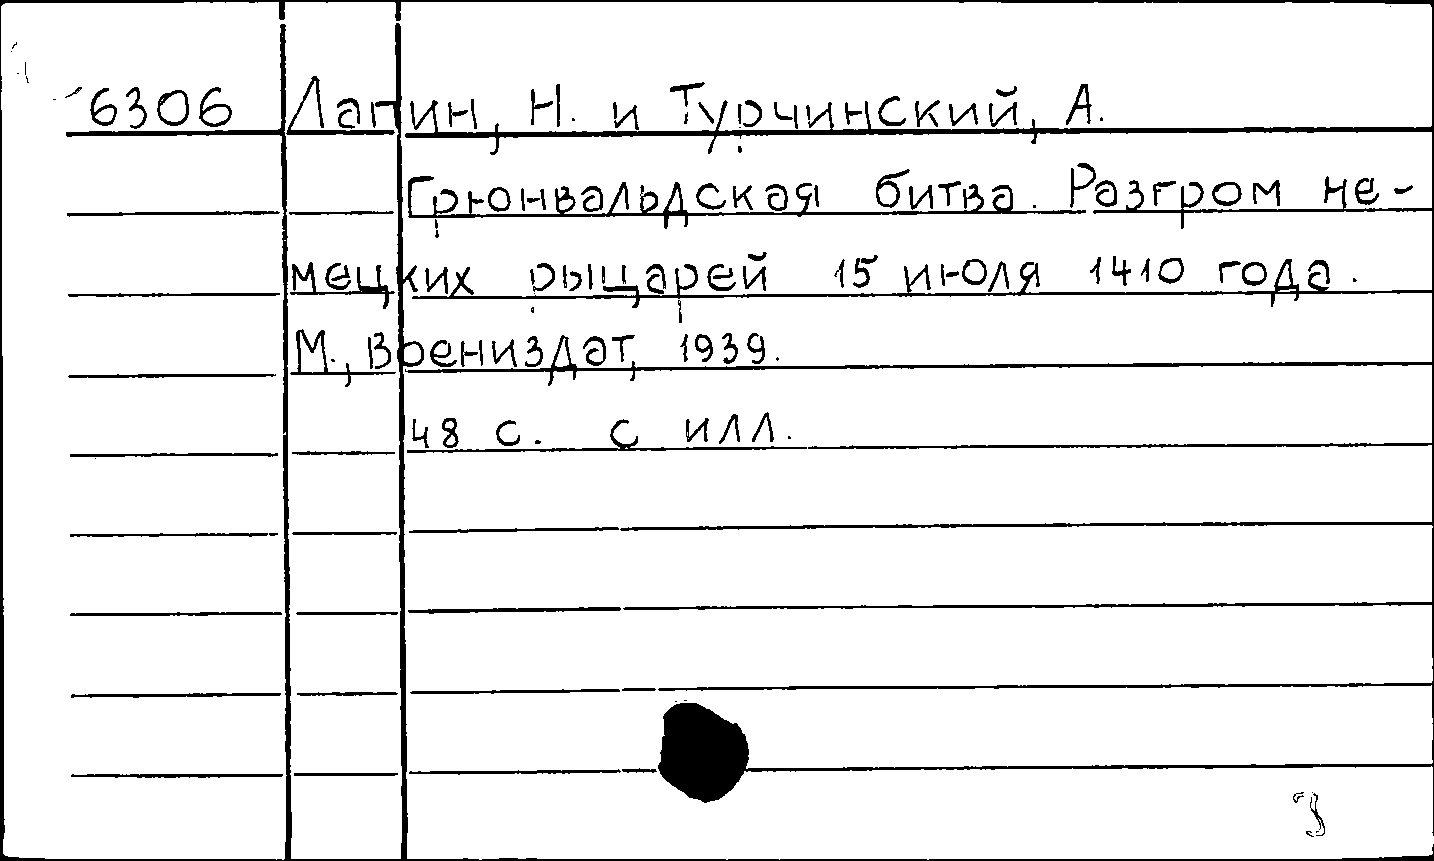 6306 Лапин, Н. и Турчинский, А.
Грюнвальдская битва. Разгром не-
мецких рыцарей 15 июля 1410 года.
М., Воениздат, 1939.
48 с. с илл.